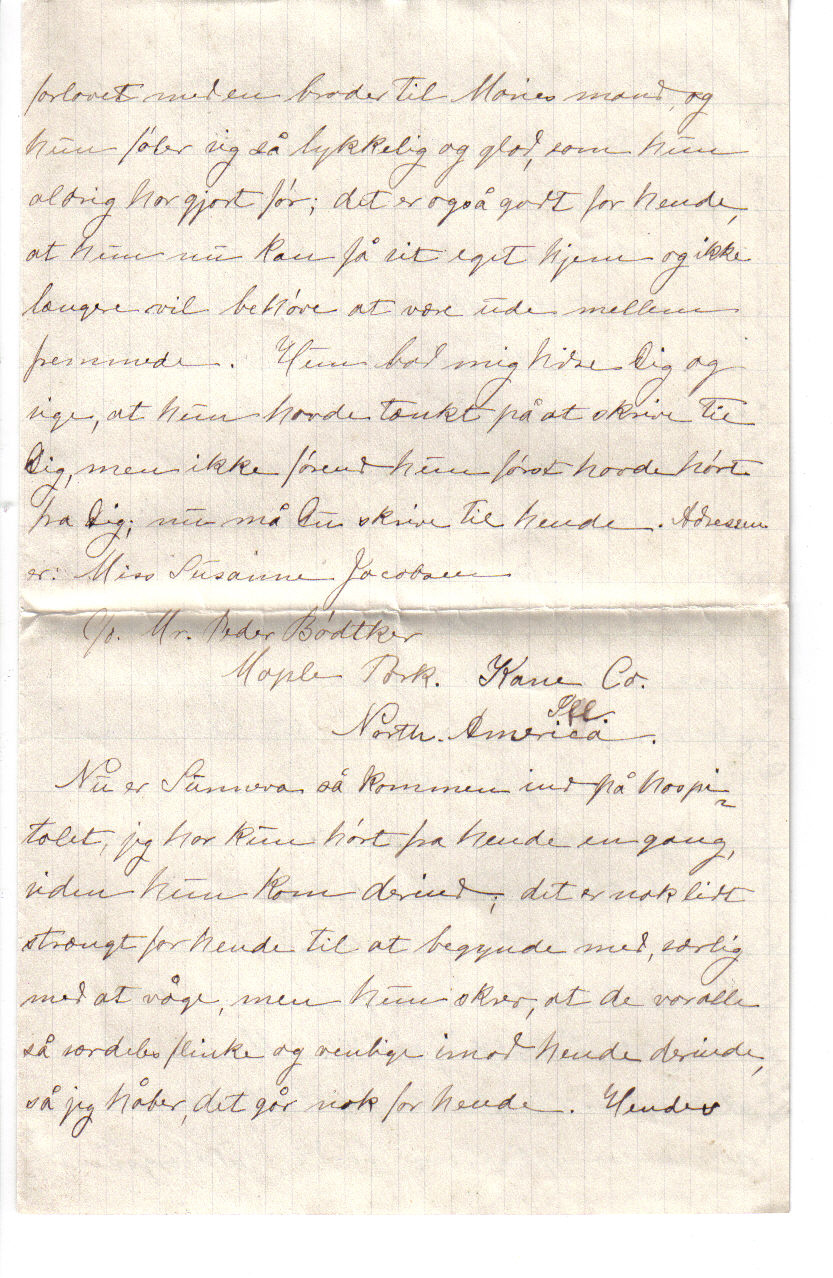 forlovet med en broder til Maries mand, og
hun føler sig så lykkelig og glad, som hun
aldrig har gjort før; det er også godt for hende,
at hun nu kan få sit eget hjem og ikke
længere vil behøve at være ude mellem
fremmede. Hun bad mig hilse Dig og
sige, at hun havde tænkt på at skrive til
Dig, men ikke førend hun først havde hørt
fra Dig; nu må Du skrive til hende. Adressen
er: Miss Susanne Jacobsen
C/o. Mr. Peder Bødtker
Maple Park. Kane Co.
Ill.
North. America.
Nu er Sunneva så kommen ind på hospi-
talet, jeg har kun hørt fra hende en gang,
siden hun kom derind; det er nok lidt
strængt for hende til at begynde med, særlig
med at våge, men hun skrev, at de var alle
så særdeles flinke og venlige imod hende derinde,
så jeg håber, det går nok for hende. Hendes